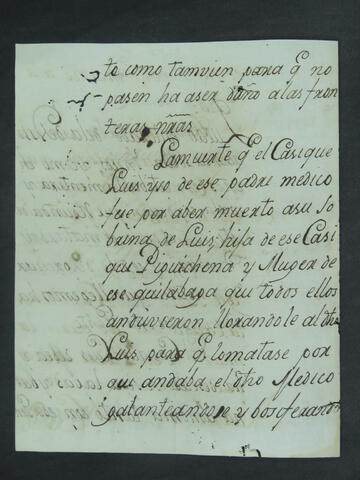 to como tamvien para q̃ no
pasen ha aser daño alas fron
teras nr̃as
La muerte q̃ el Casique
Luis yso de ese padre medico
fue por aber muerto asu so
brina de Luis hija de ese Casi
qui Piguichena y Muger de
ese guilabaga que todos ellos
anduvieron llorandole al dho
Luis para q̃ lo matase por
qui andaba el dho Medico
galanteandose y bosferando